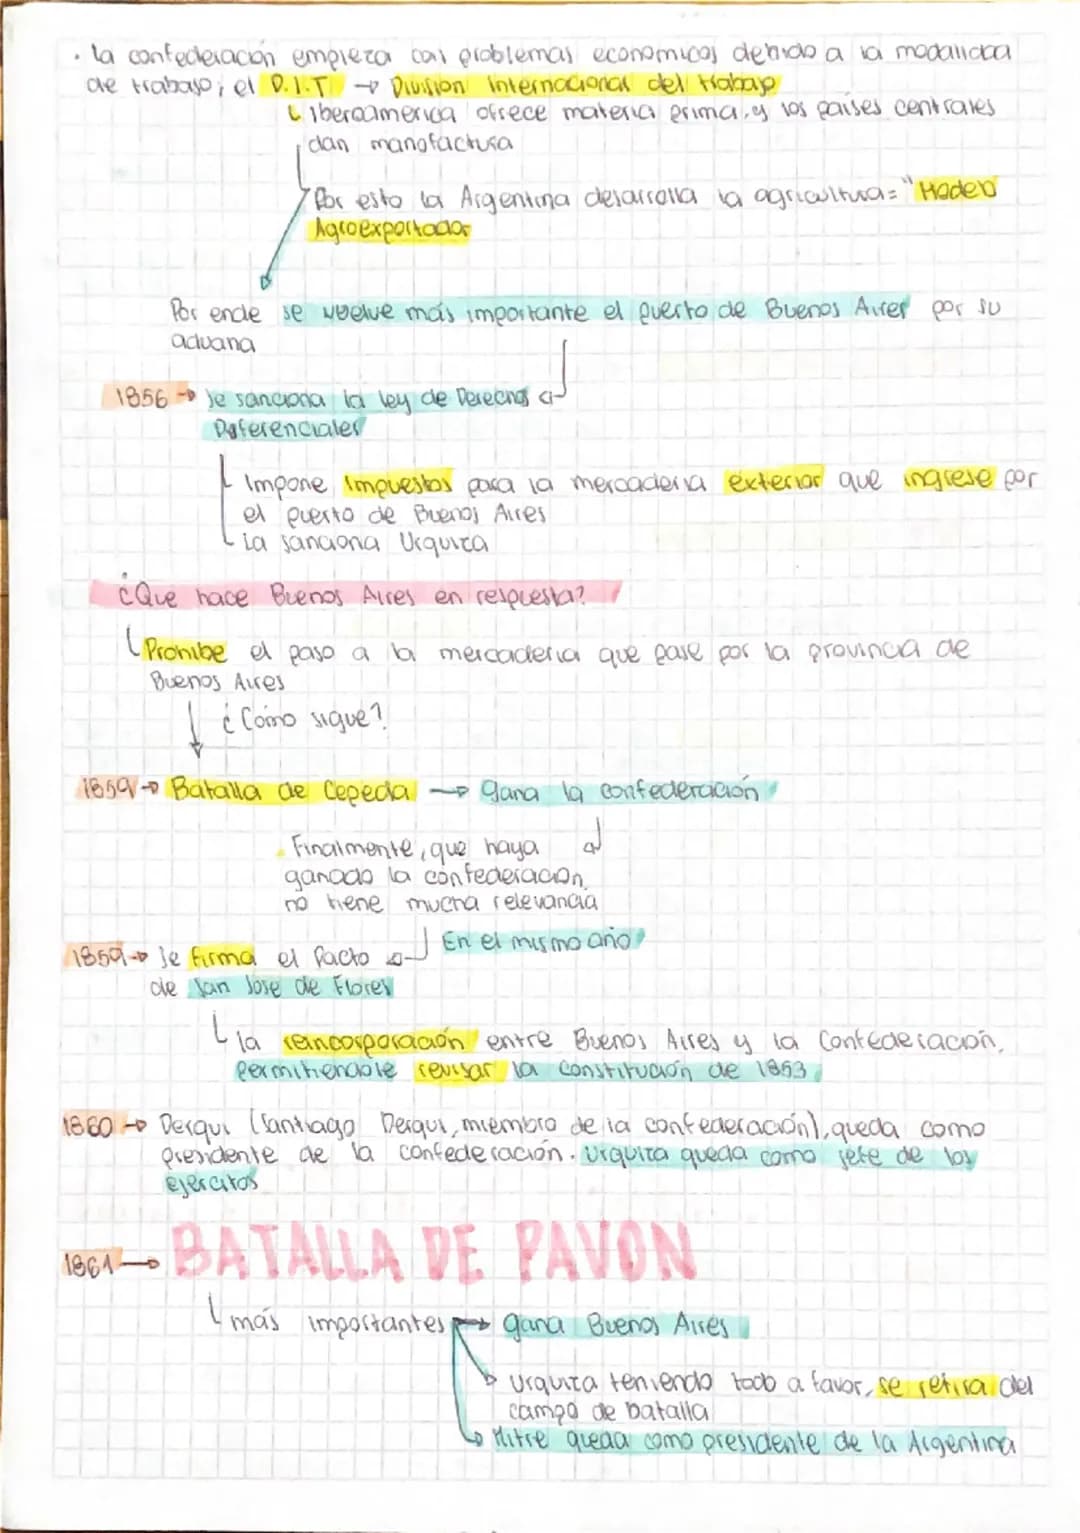 · la confederación empieza con problemas economicos debido a la modalidad
de trabajo; el D.I.T → Division internacional del trabajo
Iberoamerica ofrece materia prima, y los países centrales
dan manofactura
Por esto la Argentina desarrolla la agricultura= "Modelo
Agroexportador
Por ende se vuelve más importante el puerto de Buenos Aires por su
aduana
1856 → Se sanciona la ley de Derechos
Diferenciales
Impone impuestos para la mercaderia exterior que ingrese por
el puerto de Buenos Aires
La sanciona Urquiza
¿Que hace Buenos Aires en respuesta?
Prohibe el paso a la mercaderia que pase por la provincia de
Buenos Aires
¿Como sigue?
1859 → Batalla de Cepeda → gana la confederación
· Finalmente, que haya
ganado la confederacion,
no tiene mucha relevancia
En el mismo año
1859 → Se firma el Pacto
de San Jose de Flores
la reincorporación entre Buenos Aires y la Confederación,
permitiendole revisar la Constitución de 1853
1860 → Derqui (Santiago Derqui, miembro de la confederación), queda como
presidente de la confederación. Urquiza queda como jefe de los
ejercitos
1861 → BATALLA DE PAVON
más importantes → gana Buenos Aires
Urquiza teniendo todo a favor, se retira del
campo de batalla
Mitre queda como presidente de la Argentina